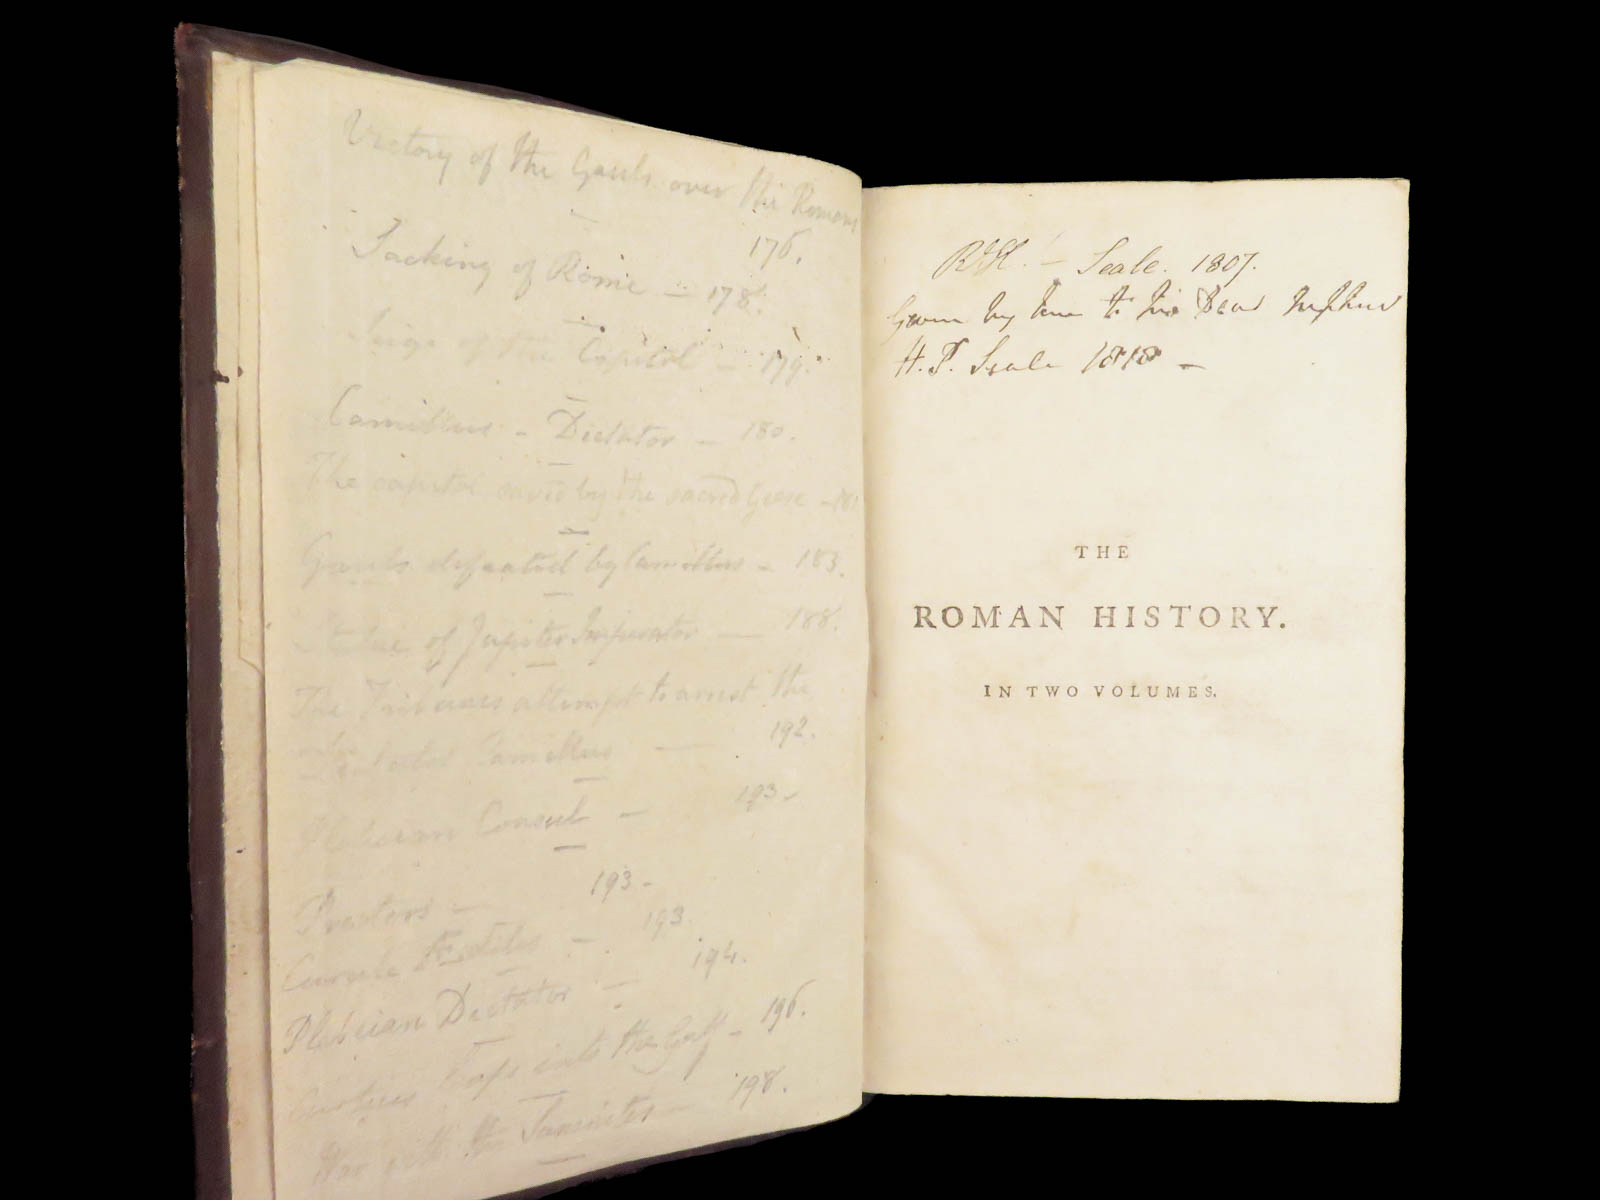 Victory of the Gauls over the Romans
176.
Sacking of Rome — 178.
Seige of the Capitol — 179.
Camillus - Dictator — 180.
The capitol saved by the sacred Geese — 181
Gauls defeated by Camillus — 183.
Statue of Jupiter Imperator — 188.
The Tribunes attempt to arrest the
Dictator Camillus — 192.
Plebeian Consul — 193 —
Praetors — 193 —
Curule Ædiles — 193
Plebeian Dictator — 194.
Curtius leaps into the Gulf — 196.
War with the Samnites — 198.
Seale. 1807.
Given by him to his Dear Nephew
H. P. Seale 1818 —
THE
ROMAN HISTORY.
IN TWO VOLUMES.